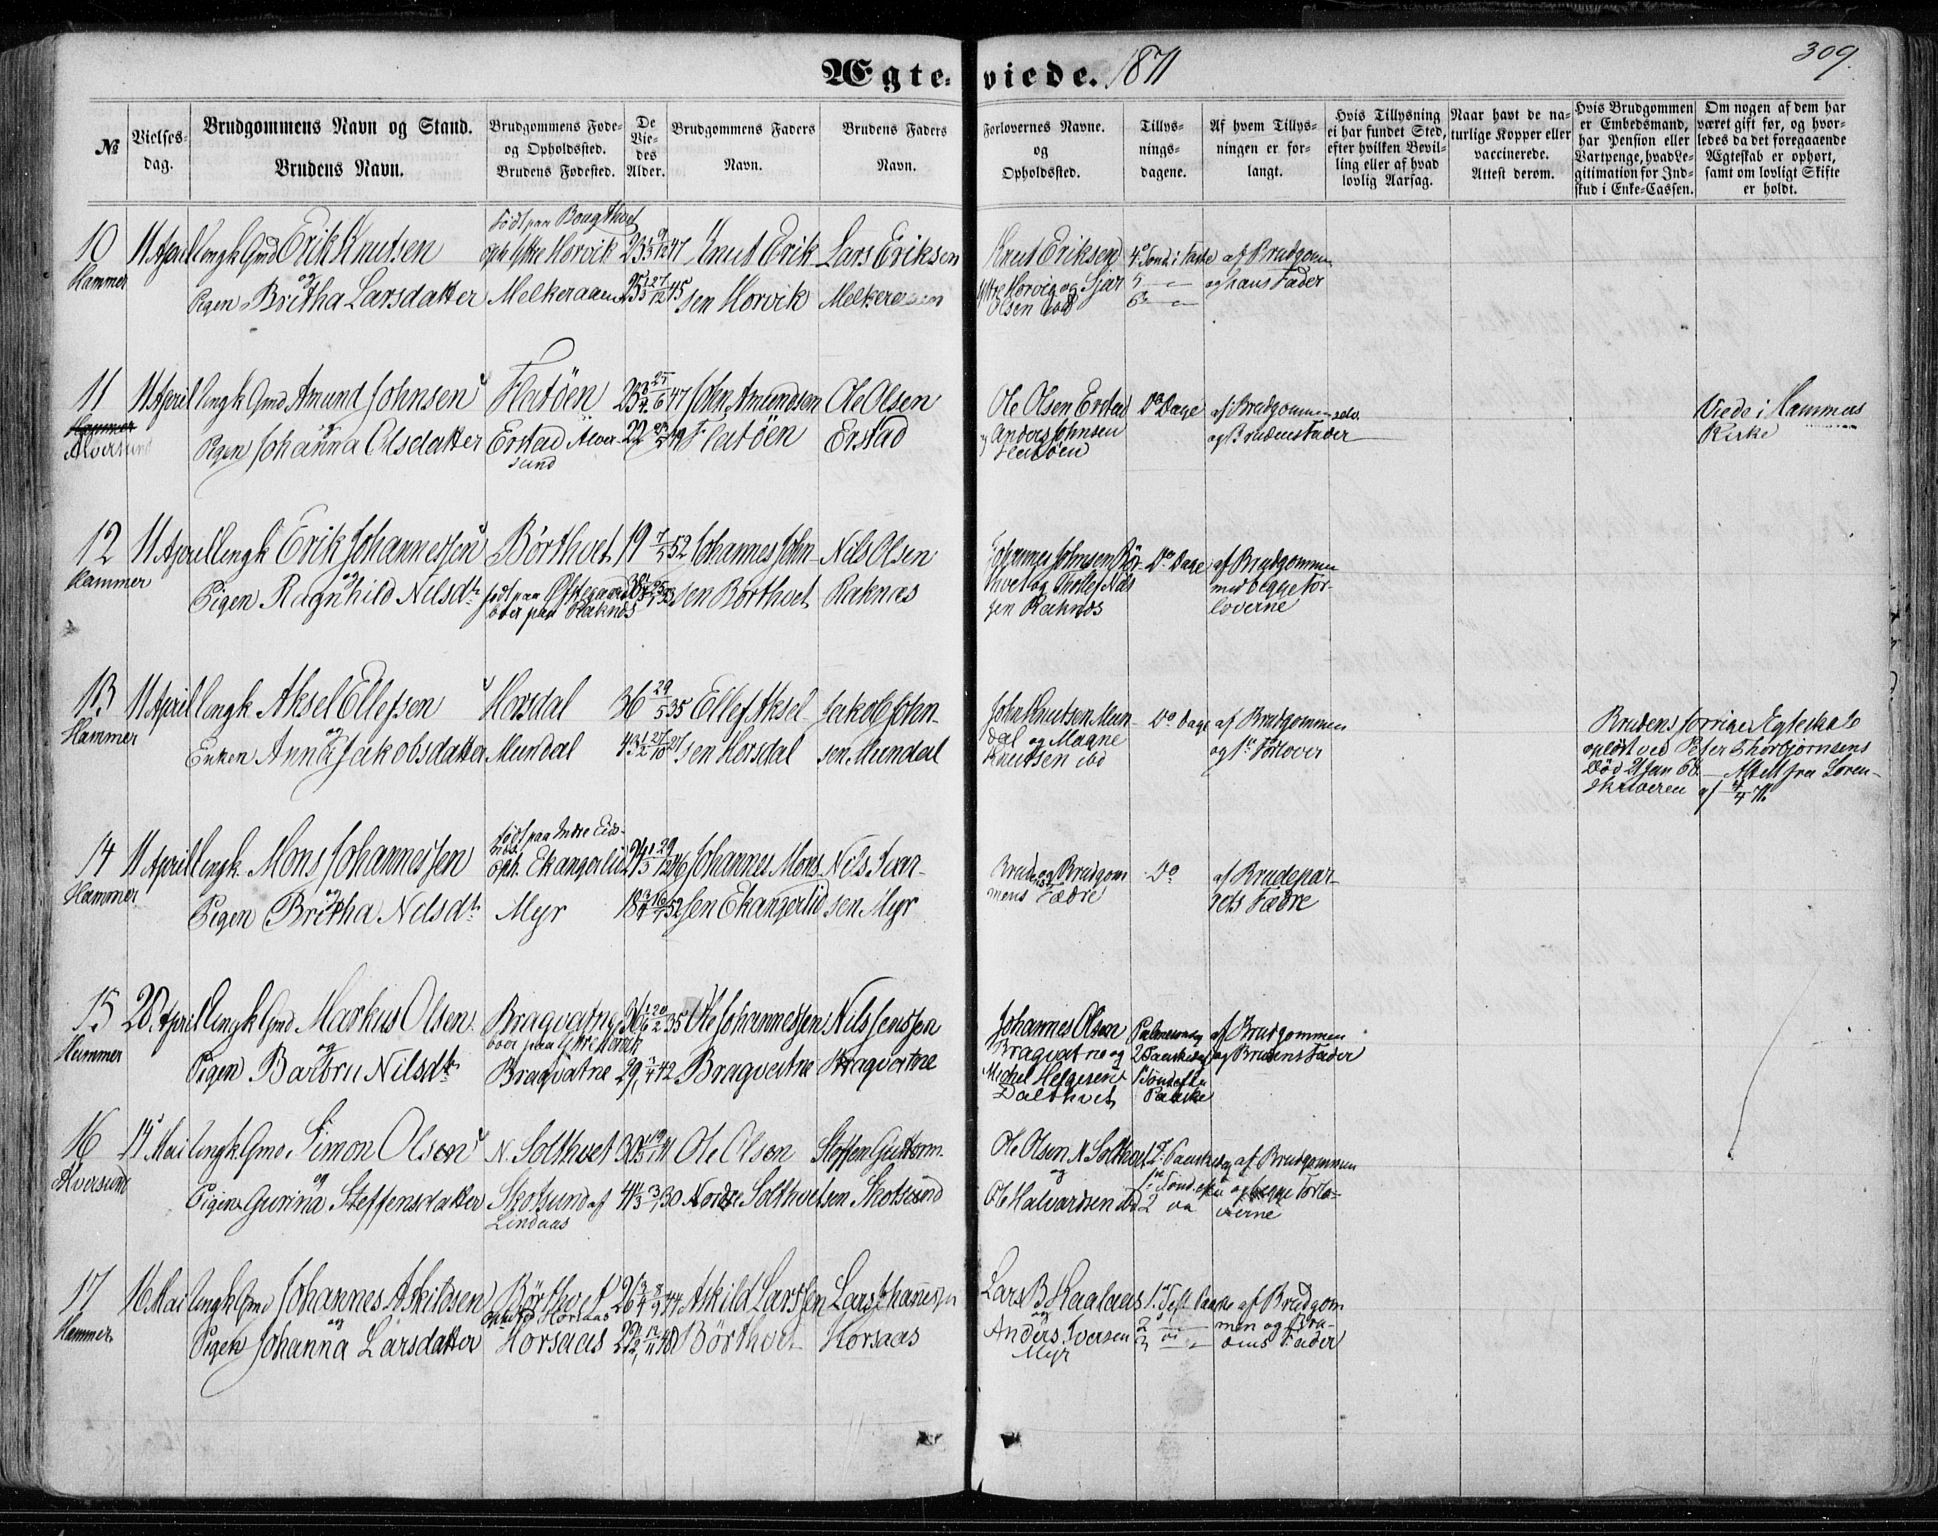 Ægteviede. 1871
309.
№
Vielses-
dag.
Brudgommens Navn og Stand.
Brudens Navn.
Brudgommens Føde-
og Opholdssted.
Brudens Fødested.
De
Vie-
des
Alder.
Brudgommens Faders
Navn.
Brudens Faders
Navn.
Forlovernes Navne.
og
Opholdssted.
Tillys-
nings-
dagene.
Af hvem Tillys-
ningen er for-
langt.
Hvis Tillysning
ei har fundet Sted,
efter hvilken Bevil-
ling eller af hvad
lovlig Aarsag.
Naar havt de na-
turlige Kopper eller
vaccinerede.
Attest derom.
Hvis Brudgommen
er Embedsmand,
har Pension eller
Vartpenge, hvad Le-
gitimation for Ind-
skud i Enke-Cassen.
Om nogen af dem har
været gift før, og hvor-
ledes da det foregaaende
Ægteskab er ophørt,
samt om lovligt Skifte
er holdt.
10
Hammer
11 April
Ungk Gmd Erik Knutsen
og
Pigen Britha Larsdatter
Født paa
oph Ytre Horvik
Melkeraaen
Knut Erik
sen Horvik
Lars Eriksen
Melkeraaen
Knut Eriksen
Ytre Horvig og Sjur
Olsen ibd
4de Sønd i Faste
5 — "
6te — "
af Brudgom
og hans Fader
11
Hammer
Alversund
11 April
Ungk Gmd Amund Johnsen
og
Pigen Johanna Olsdatter
Flatöen
Erstad Alver
sund
John Amundsen
Flatöen
Ole Olsen
Erstad
Ole Olsen Erstad
og Anders Johnsen
Flatöen
Do Dage
af Brudgommen selv
og Brudens Fader
Viede i Hammers
Kirke
12
Hammer
11 April
Ungk Erik Johannessen
og
Pigen Ragnhild Nilsdtr
Börthvet
født paa
boer paa Raknæs
19 7/5 52
Johannes John
sen Börthvet
Nils Olsen
Raknæs
Johannes Johnsen Bör-
thvet og Nils
sen Raknæs
Do Dage
af Brudgommen
med begge For-
loverne
13
Hammer
11 April
Ungk. Aksel Ellefsen
og
Enken Anna Jakobsdatter
Horsdal
Mundal
36 29/5 35
Ellef Aksel-
sen Horsdal
Jakob John-
sen Mundal
John Knutsen Mun-
dal og Magne
Knutsen ibd
Do Dage
af Brudgommen
og 1e Forlover
Brudens forrige Egteskab
opløst ved Peter Thorbjørnsens
Død 21 Jan 68. — Attest fra Soren-
skriveren af 4/4 71.
14
Hammer
11 April
Ungk. Mons Johannessen
og
Pigen Britha Nilsdtr
født paa Indre Eids-
oph. Ekangerlid
Myr
Johannes Mons
sen Ekangerlid
Nils Ivar-
sen Myr
Brudens og Brudgom
mens Fædre
Do
af Brudepar-
rets Fædre
15
Hammer
28. April
Ungk Gmd Markus Olsen
og
Pigen Barbru Nilsdtr
Bragvatne
boer paa Ytre Horvik
Bragvatne
29 1/4 42
Ole Johannessen
Bragvatne
Nils Jenssen
Bragvatne
Johannes Olsen
Bragvatne og
Michel Helgesen
Dalthvet
Palmesøndag
2 Paaskedag
1 Sønd efter
Paaske
af Brudgommen
og Brudens Fader
16
Alversund
15 Mai
Ungk Gmd. Simon Olsen
og
Pigen Gurina Steffensdatter
N. Solthvet
Skotsund af
Lindaas
Ole Olsen
Nordre Solthvet
Steffen Guttorm-
sen Skotsund
Ole Olsen N Solthvet
og
Ole Halvardsen ibd
2. Paaskedag
1ste Sønd efter
2 do
af Brudgommen
og begge Forlo-
verne
17
Hammer
16 Mai
Ungk Gmd Johannes Askildsen
og
Pigen Johanna Larsdatter
Börthvet
oph Horsaas
Horsaas
Askild Larssen
Börthvet
Lars Johannessen
Horsaas
Lars B Haalaas
og
Anders Iversen
Myr
1ste Søn Paaske
2 —
3 — "
af Brudgom
men og Bru-
dens Fader